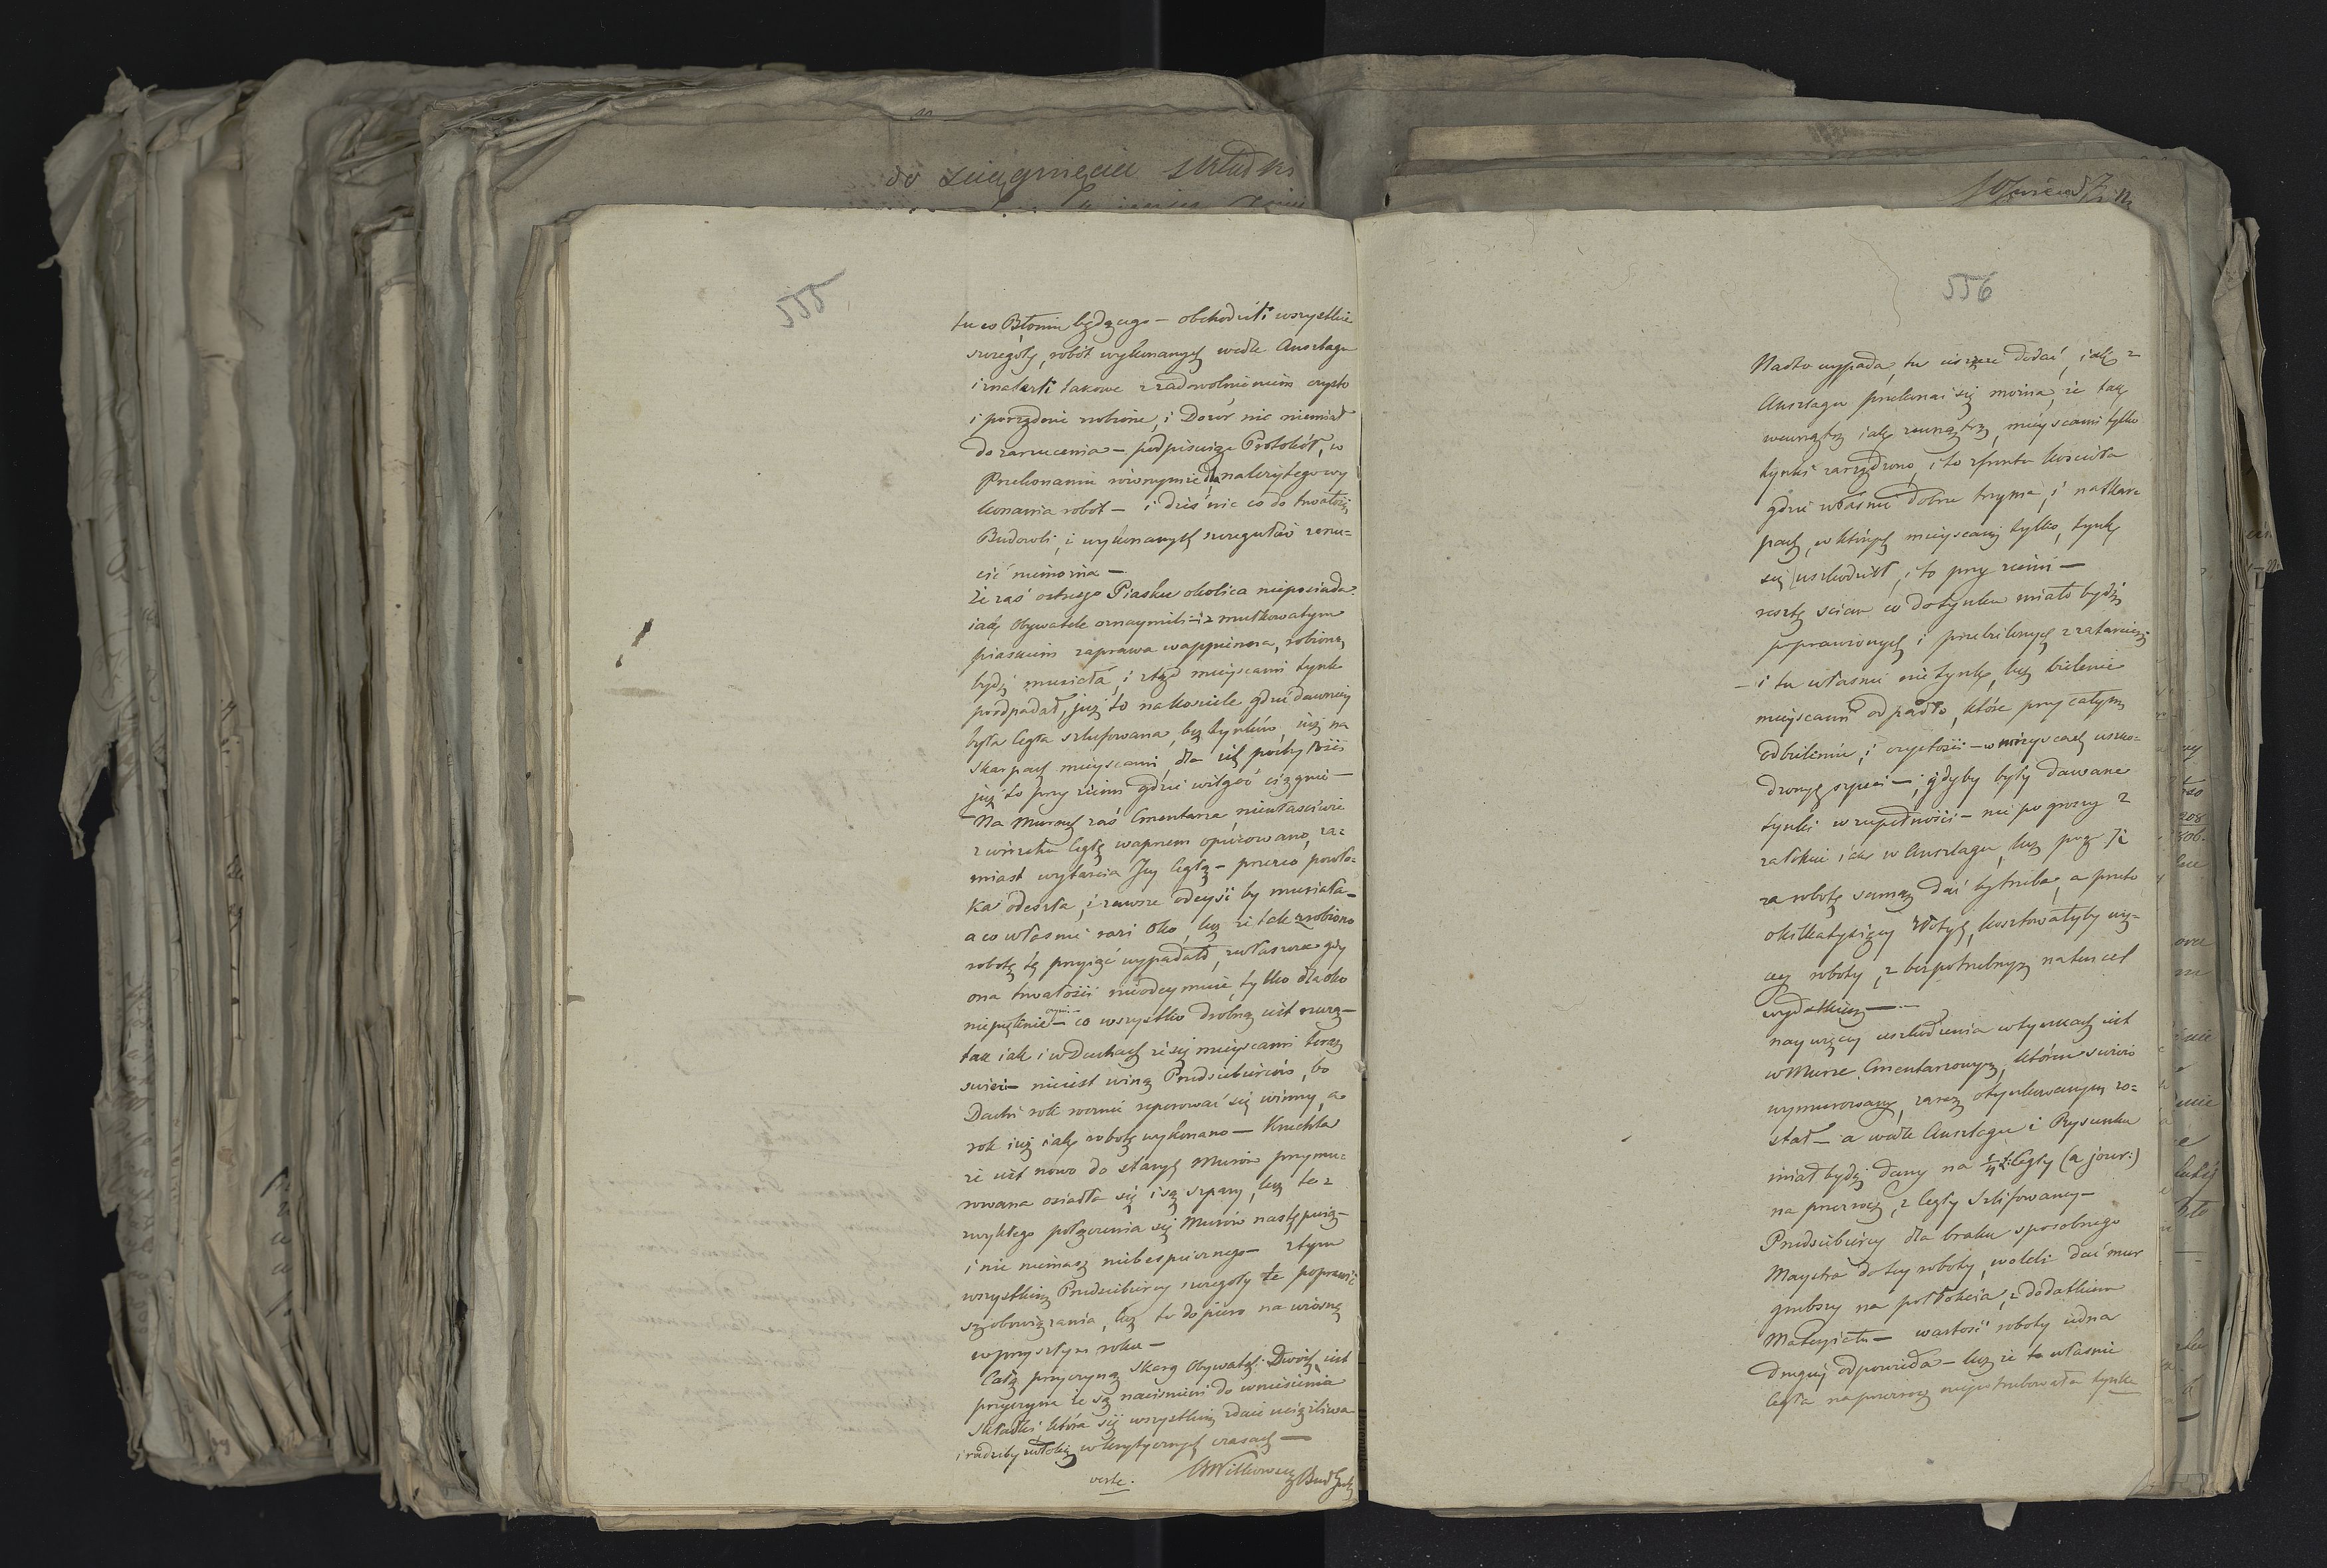 do sciągnięcia składki
555
tu w Błoniu będącego — obchodzili wszystkie
szczegóły, robót wykonanych wedle Anszlagu
i znaleźli takowe z zadowolnieniem czysto
i porządnie zrobione, i Dozór nic niemiał
do zarzucenia — podpisując Protokół, w
Przekonaniu równymże dla należytego wy
konania robót — i dziś nic co do trwałości
Budowli, i wykonanych szczegułów zarzu=
cić niemożna —
Że zaś ostrego Piasku okolica nieposiada
jak Obywatele oznaymili — i z mułkowatym
piaskiem zaprawa wappienna, robioną
bydź musiała, i ztąd mieyscami tynk
poodpadał, już to na kościele, gdzie dawniey
była cegła szlufowana, bez tynków, już na
skarpach mieyscami, dla ich pochyłości
już to przy ziemi gdzie wilgoć ciągnie —
Na Murach zaś Cmentarza, niewłaściwie
z wierzchu cegłę wapnem opiórowano, za=
miast wytarcia Jey cegłą — przeco powło=
ka odeszła, i zawsze odeyść by musiała —
a co właśnie razi oko, lecz że tak zrobiono
robotę tę przyiąć wypadało, zwłaszcza gdy
ona trwałości nieodeymuie, tylko dla oka
niepięknie — co wszystko drobną iest rzeczą —
tak iak i w Dachach że się mieyscami teraz
świeci — nieiest winą Przedsiebierców, bo
Dachy rok rocznie reperować się winny, a
rok iuż iak robotę wykonano — Kruchta
że iest nowo do starych Murów przymu=
rowana osiadła się i są szpary, lecz to z
zwykłego połączenia się Murów następuie —
i nic niemasz niebespiecznego — z tym
wszystkim Przedsiebiercy szczegóły te poprawić
są obowiązania, lecz to dopiero na wiosnę
w przyszłym roku —
Całą przyczyną skarg Obywateli Dwóch iest
przyczyna że są naciśnieni do wniesienia
Składki, która się wszystkim zdaie uciążliwa
i radziby zwłokę w krytycznych czasach —
verte.
556
Nadto wypada, tu ieszcze dodać, iak z
Anszlagu przekonać się można, że tak
wewnątrz iak zewnątrz, mieyscami tylko
tynki zarządzono, i to z frontu kościoła
gdzie właśnie dobrze trzyma, i na skar=
pach, w których mieyscami tylko, tynk
się uszkodził, i to przy ziemi —
resztę ścian co do tynku miało bydź
poprawionych i przebielonych z zatarciem
— i tu właśnie nie tynk, lecz bielenie
mieyscami odpadło, które przy całym
odbieleniu, i czystości — w mieyscach uszko=
dzonych szpeci —, gdyby były dawane
tynki w zupełności — nie po groszy 2
za łokieć iak w Anszlagu, lecz przez
za robotę samą dać by trzeba, a przeto
o kilka tysięcy Złotych, kosztowałyby wię=
cey roboty, z bezpotrzebnym na ten cel
wydatkiem —
naywięcey uszkodzenia w tynkach iest
w Murze Cmentarzowym, który świeżo
wymurowany, zaraz otynkowanym zo=
stał — a wedle Anszlagu i Rysunku
miał bydź dany na cegły (a jour:)
na przezrocz, z cegły szlifowaney —
Przedsiebiercy dla braku sposobnego
Maystra do tey roboty, woleli dać mur
grubszy na pół łokcia, z dodatkiem
Materyału — wartość roboty iedna
drugiey odpowiada — lecz że to właśnie
cegła na przezrocz niepotrzebowała tynku